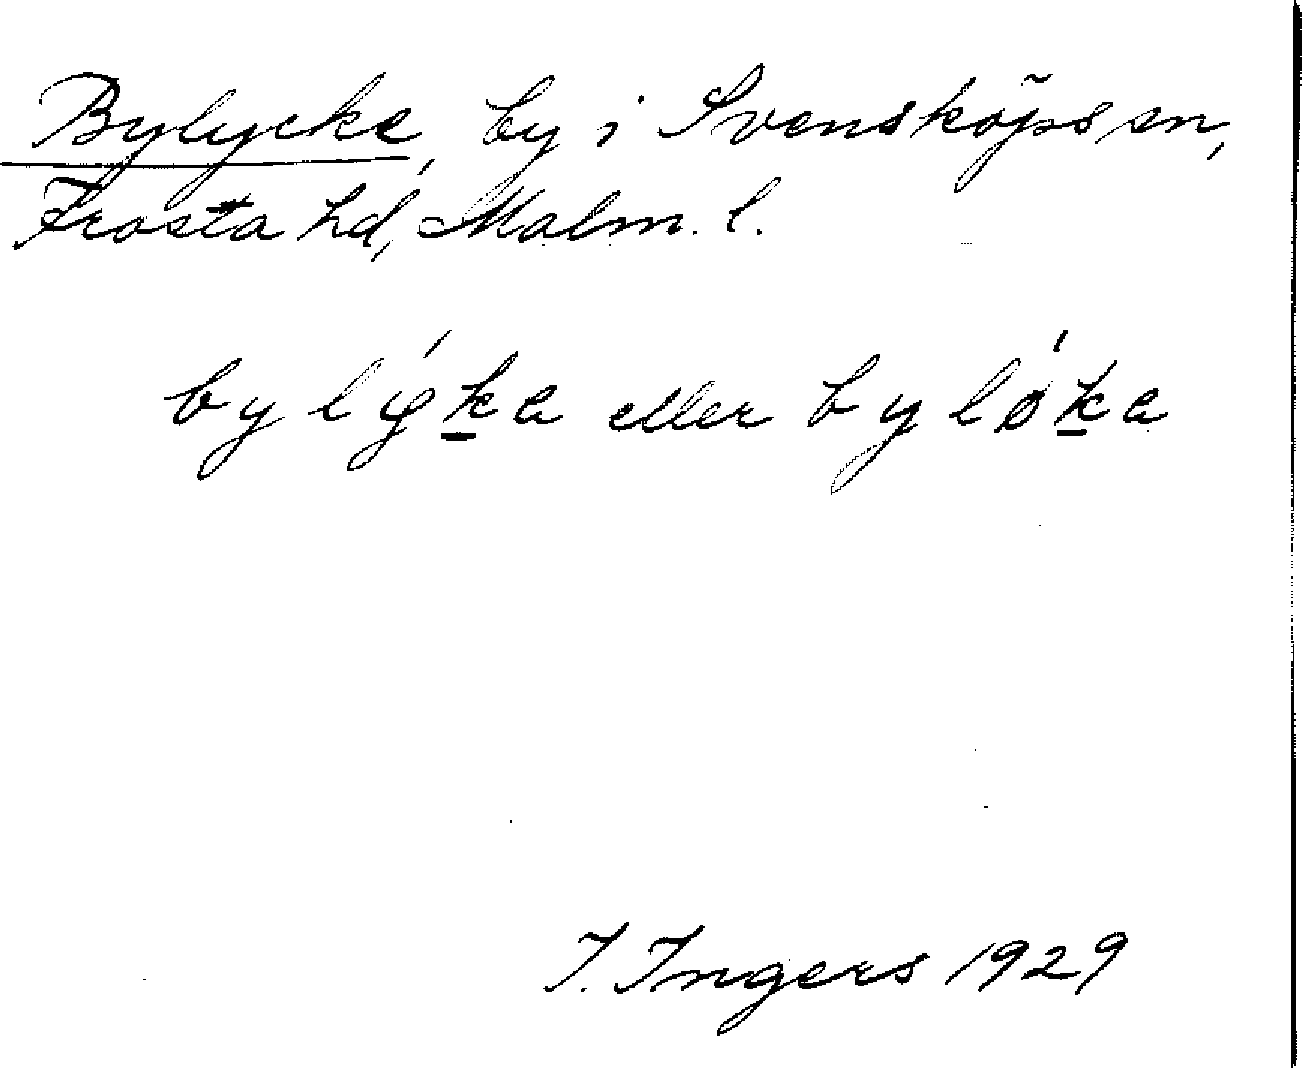 Bylycke, by i Svensköps sn,
Frosta hd, Malm. l.
bylýka eller bylǿka
I. Ingers 1929